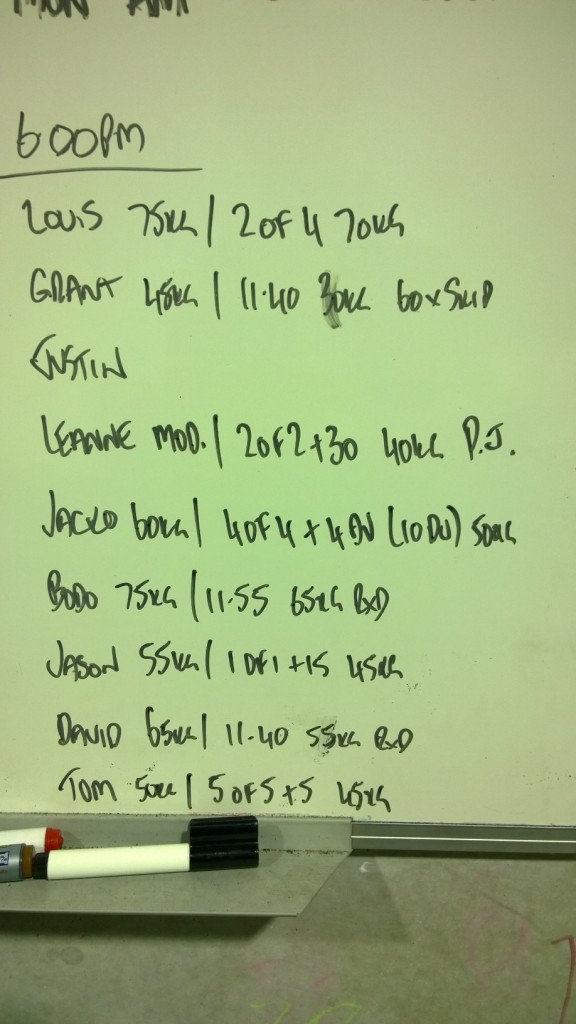 MON AM
6:00PM
LOUIS 75KG | 2 OF 4 70KG
GRANT 45KG | 11.40 30KG 60 x SKIP
LEANNE MOD. | 2 OF 2 + 30 40KG P.J.
JACKO 60KG | 4 OF 4 + 4 (10 DU) 50KG
BODO 75KG | 11.55 65KG RXD
JASON 55KG | 1 OF 1 + 15 45KG
DAVID 65KG | 11.40 55KG RXD
TOM 50KG | 5 OF 5 + 5 45KG